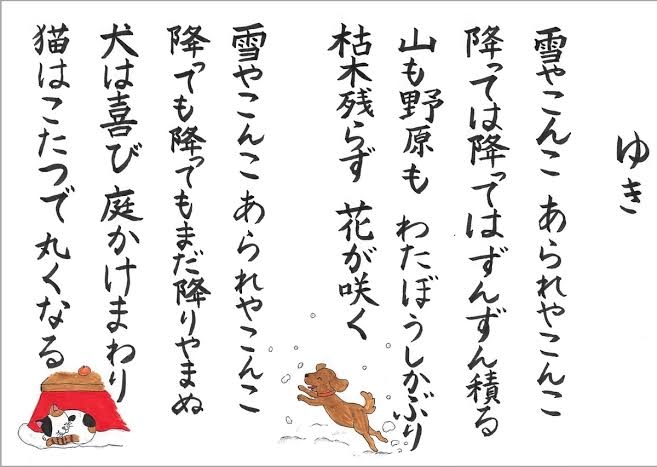 ゆき
雪やこんこ あられやこんこ
降っては降っては ずんずん積る
山も野原も わたぼうしかぶり
枯木残らず 花が咲く
雪やこんこ あられやこんこ
降っても降ってもまだ降りやまぬ
犬は喜び 庭かけまわり
猫はこたつで丸くなる